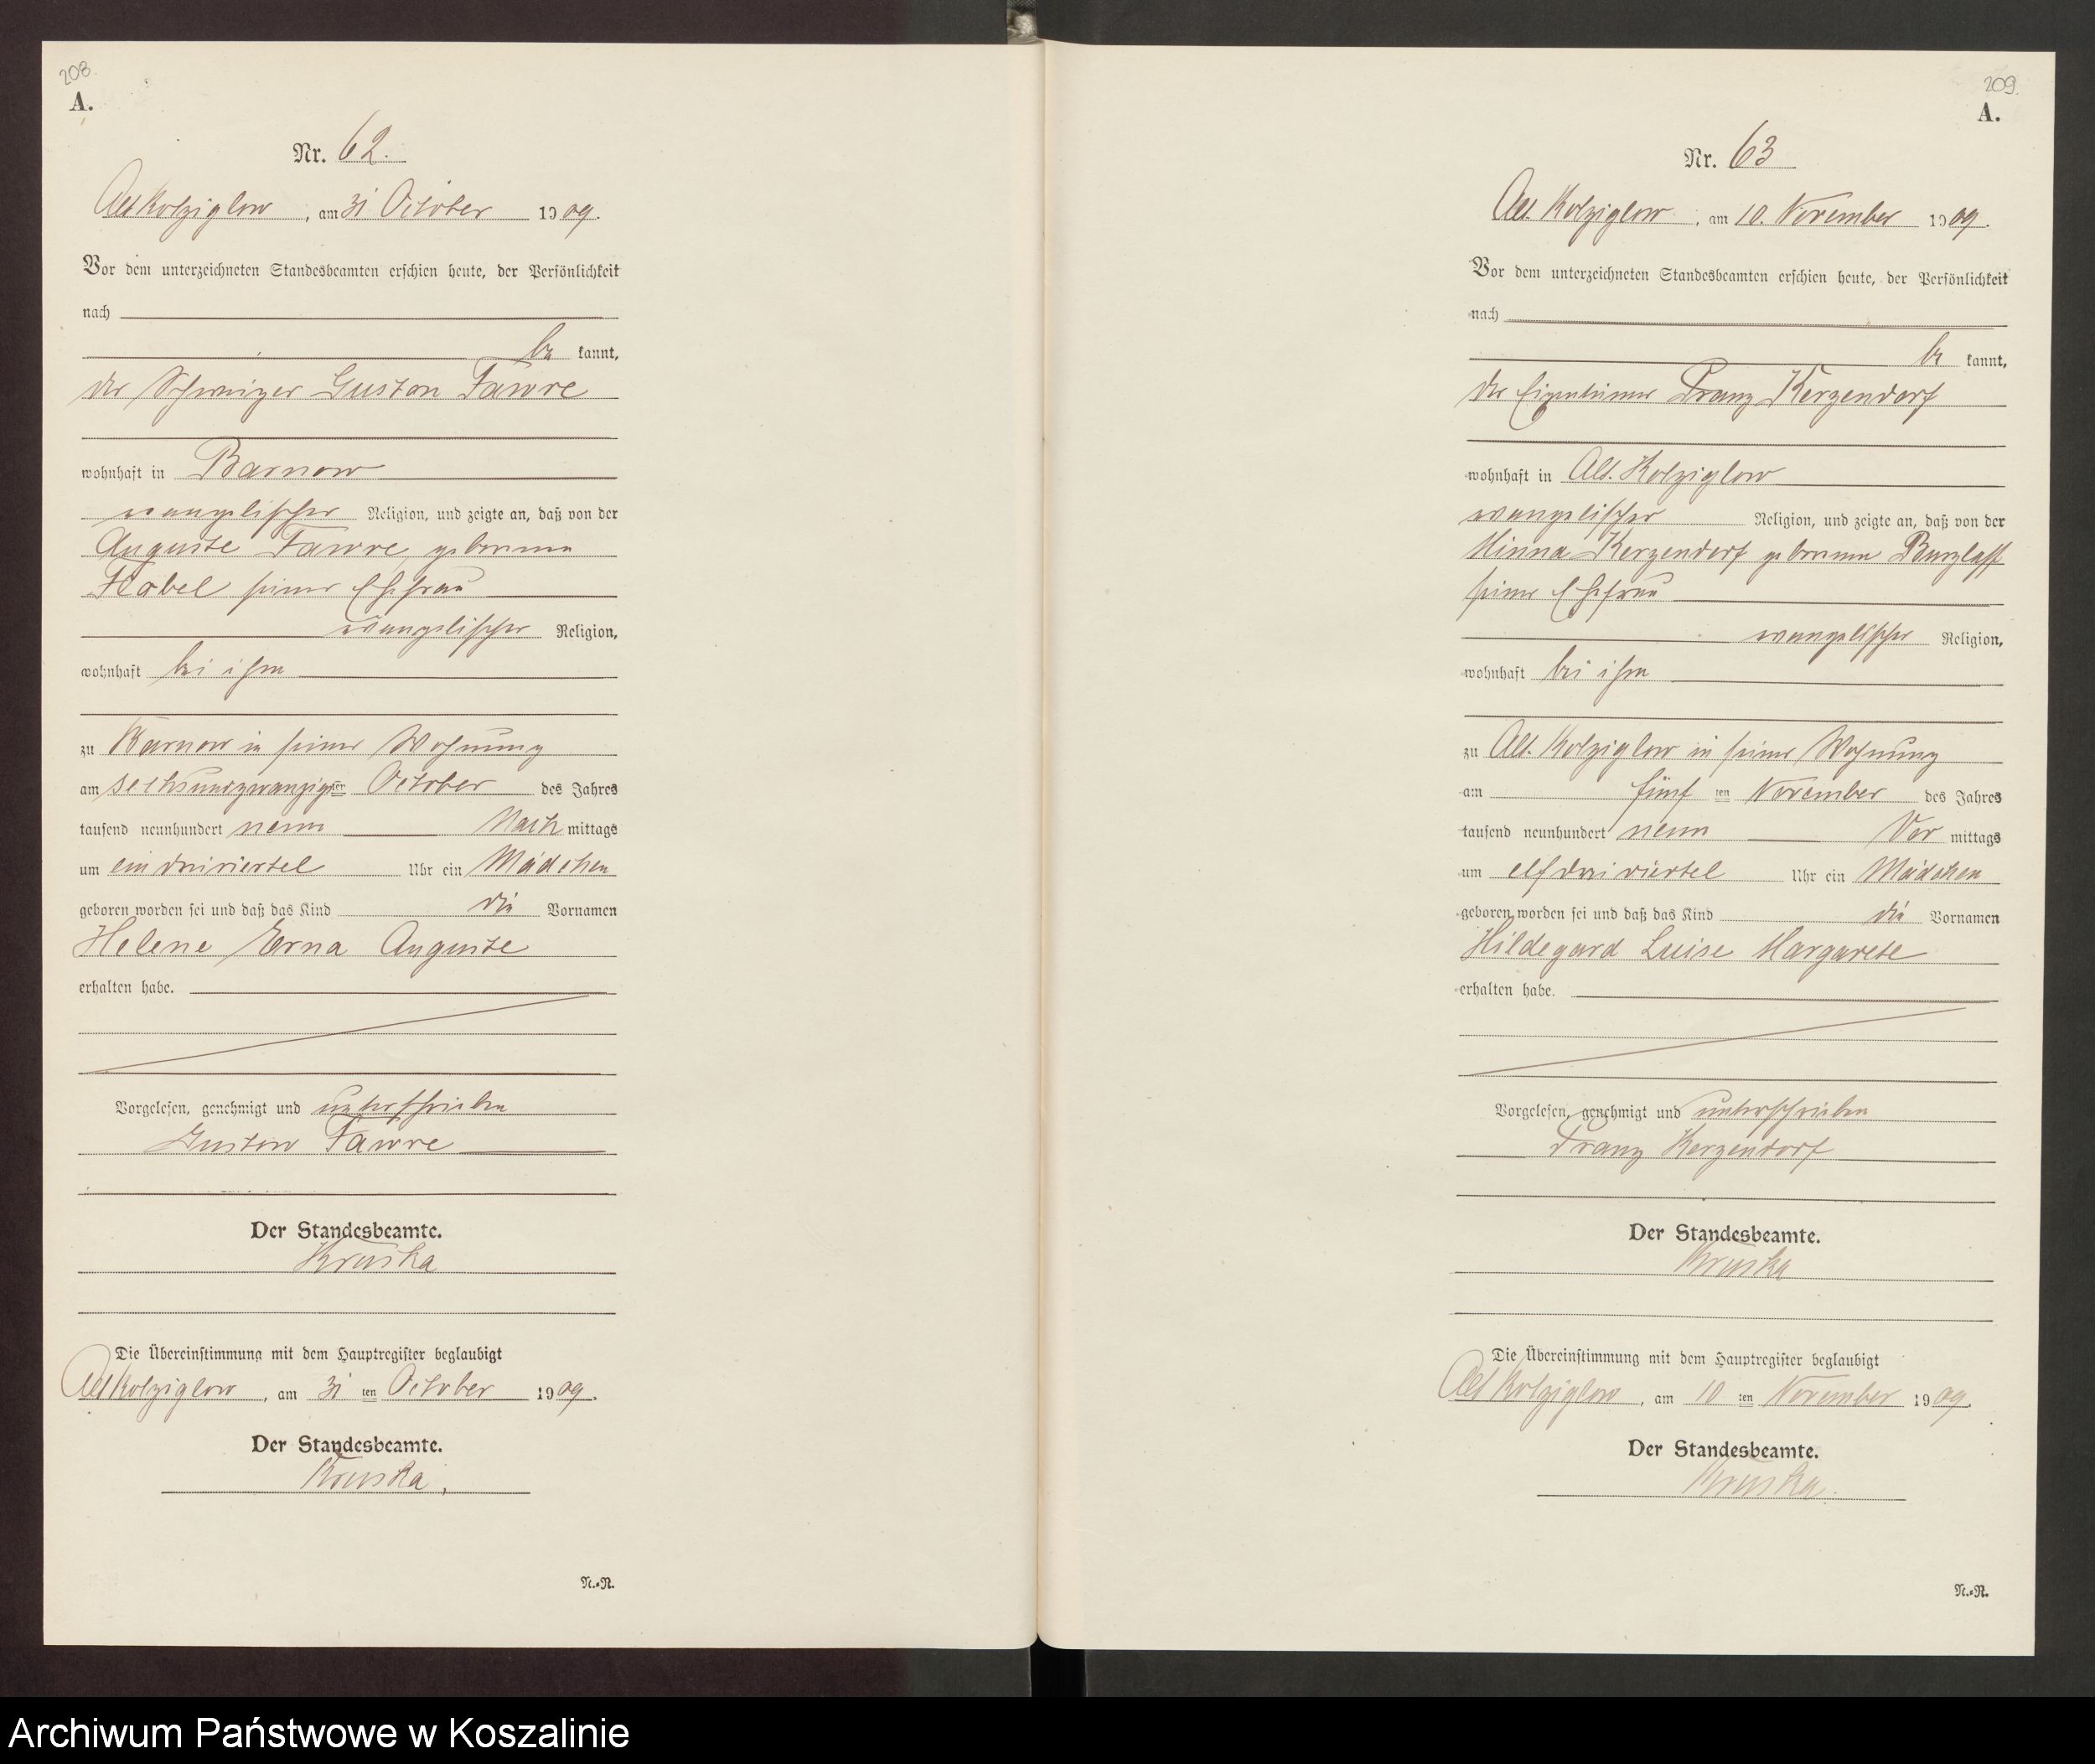 208.
A.
Nr. 62.
Alt Kolziglow, am 31 October 1909.
Vor dem unterzeichneten Standesbeamten erschien heute, der Persönlichkeit
nach
be kannt,
der Schweizer Gustav Fawre
wohnhaft in Barnow
evangelischer Religion, und zeigte an, daß von der
Auguste Fawre, geborenen
Flobel seiner Ehefrau
evangelischer Religion,
wohnhaft bei ihm
zu Barnow in seiner Wohnung
am sechsundzwanzigsten October des Jahres
tausend neunhundert neun Nach mittags
um ein dreiviertel Uhr ein Mädchen
geboren worden sei und daß das Kind die Vornamen
Helene Erna Auguste
erhalten habe.
Vorgelesen, genehmigt und unterschrieben
Gustav Fawre
Der Standesbeamte.
Kruska
Die Übereinstimmung mit dem Hauptregister beglaubigt
Alt Kolziglow, am 31 ten October 1909.
Der Standesbeamte.
Kruska.
N.-R.
209.
A.
Nr. 63
Alt. Kolziglow, am 10. November 1909.
Vor dem unterzeichneten Standesbeamten erschien heute, der Persönlichkeit
nach
be kannt,
der Eigentümer Franz Kerzendorf
wohnhaft in Alt. Kolziglow
evangelischer Religion, und zeigte an, daß von der
Minna Kerzendorf geborenen Burzlaff
seiner Ehefrau
evangelischer Religion,
wohnhaft bei ihm
zu Alt. Kolziglow in seiner Wohnung
am fünf ten November des Jahres
tausend neunhundert neun Vor mittags
um elf dreiviertel Uhr ein Mädchen
geboren worden sei und daß das Kind die Vornamen
Hildegard Luise Margarete
erhalten habe.
Vorgelesen, genehmigt und unterschrieben
Franz Kerzendorf
Der Standesbeamte.
Kruska
Die Übereinstimmung mit dem Hauptregister beglaubigt
Alt Kolziglow, am 10 ten November 1909.
Der Standesbeamte.
Kruska.
N.-R.
Archiwum Państwowe w Koszalinie